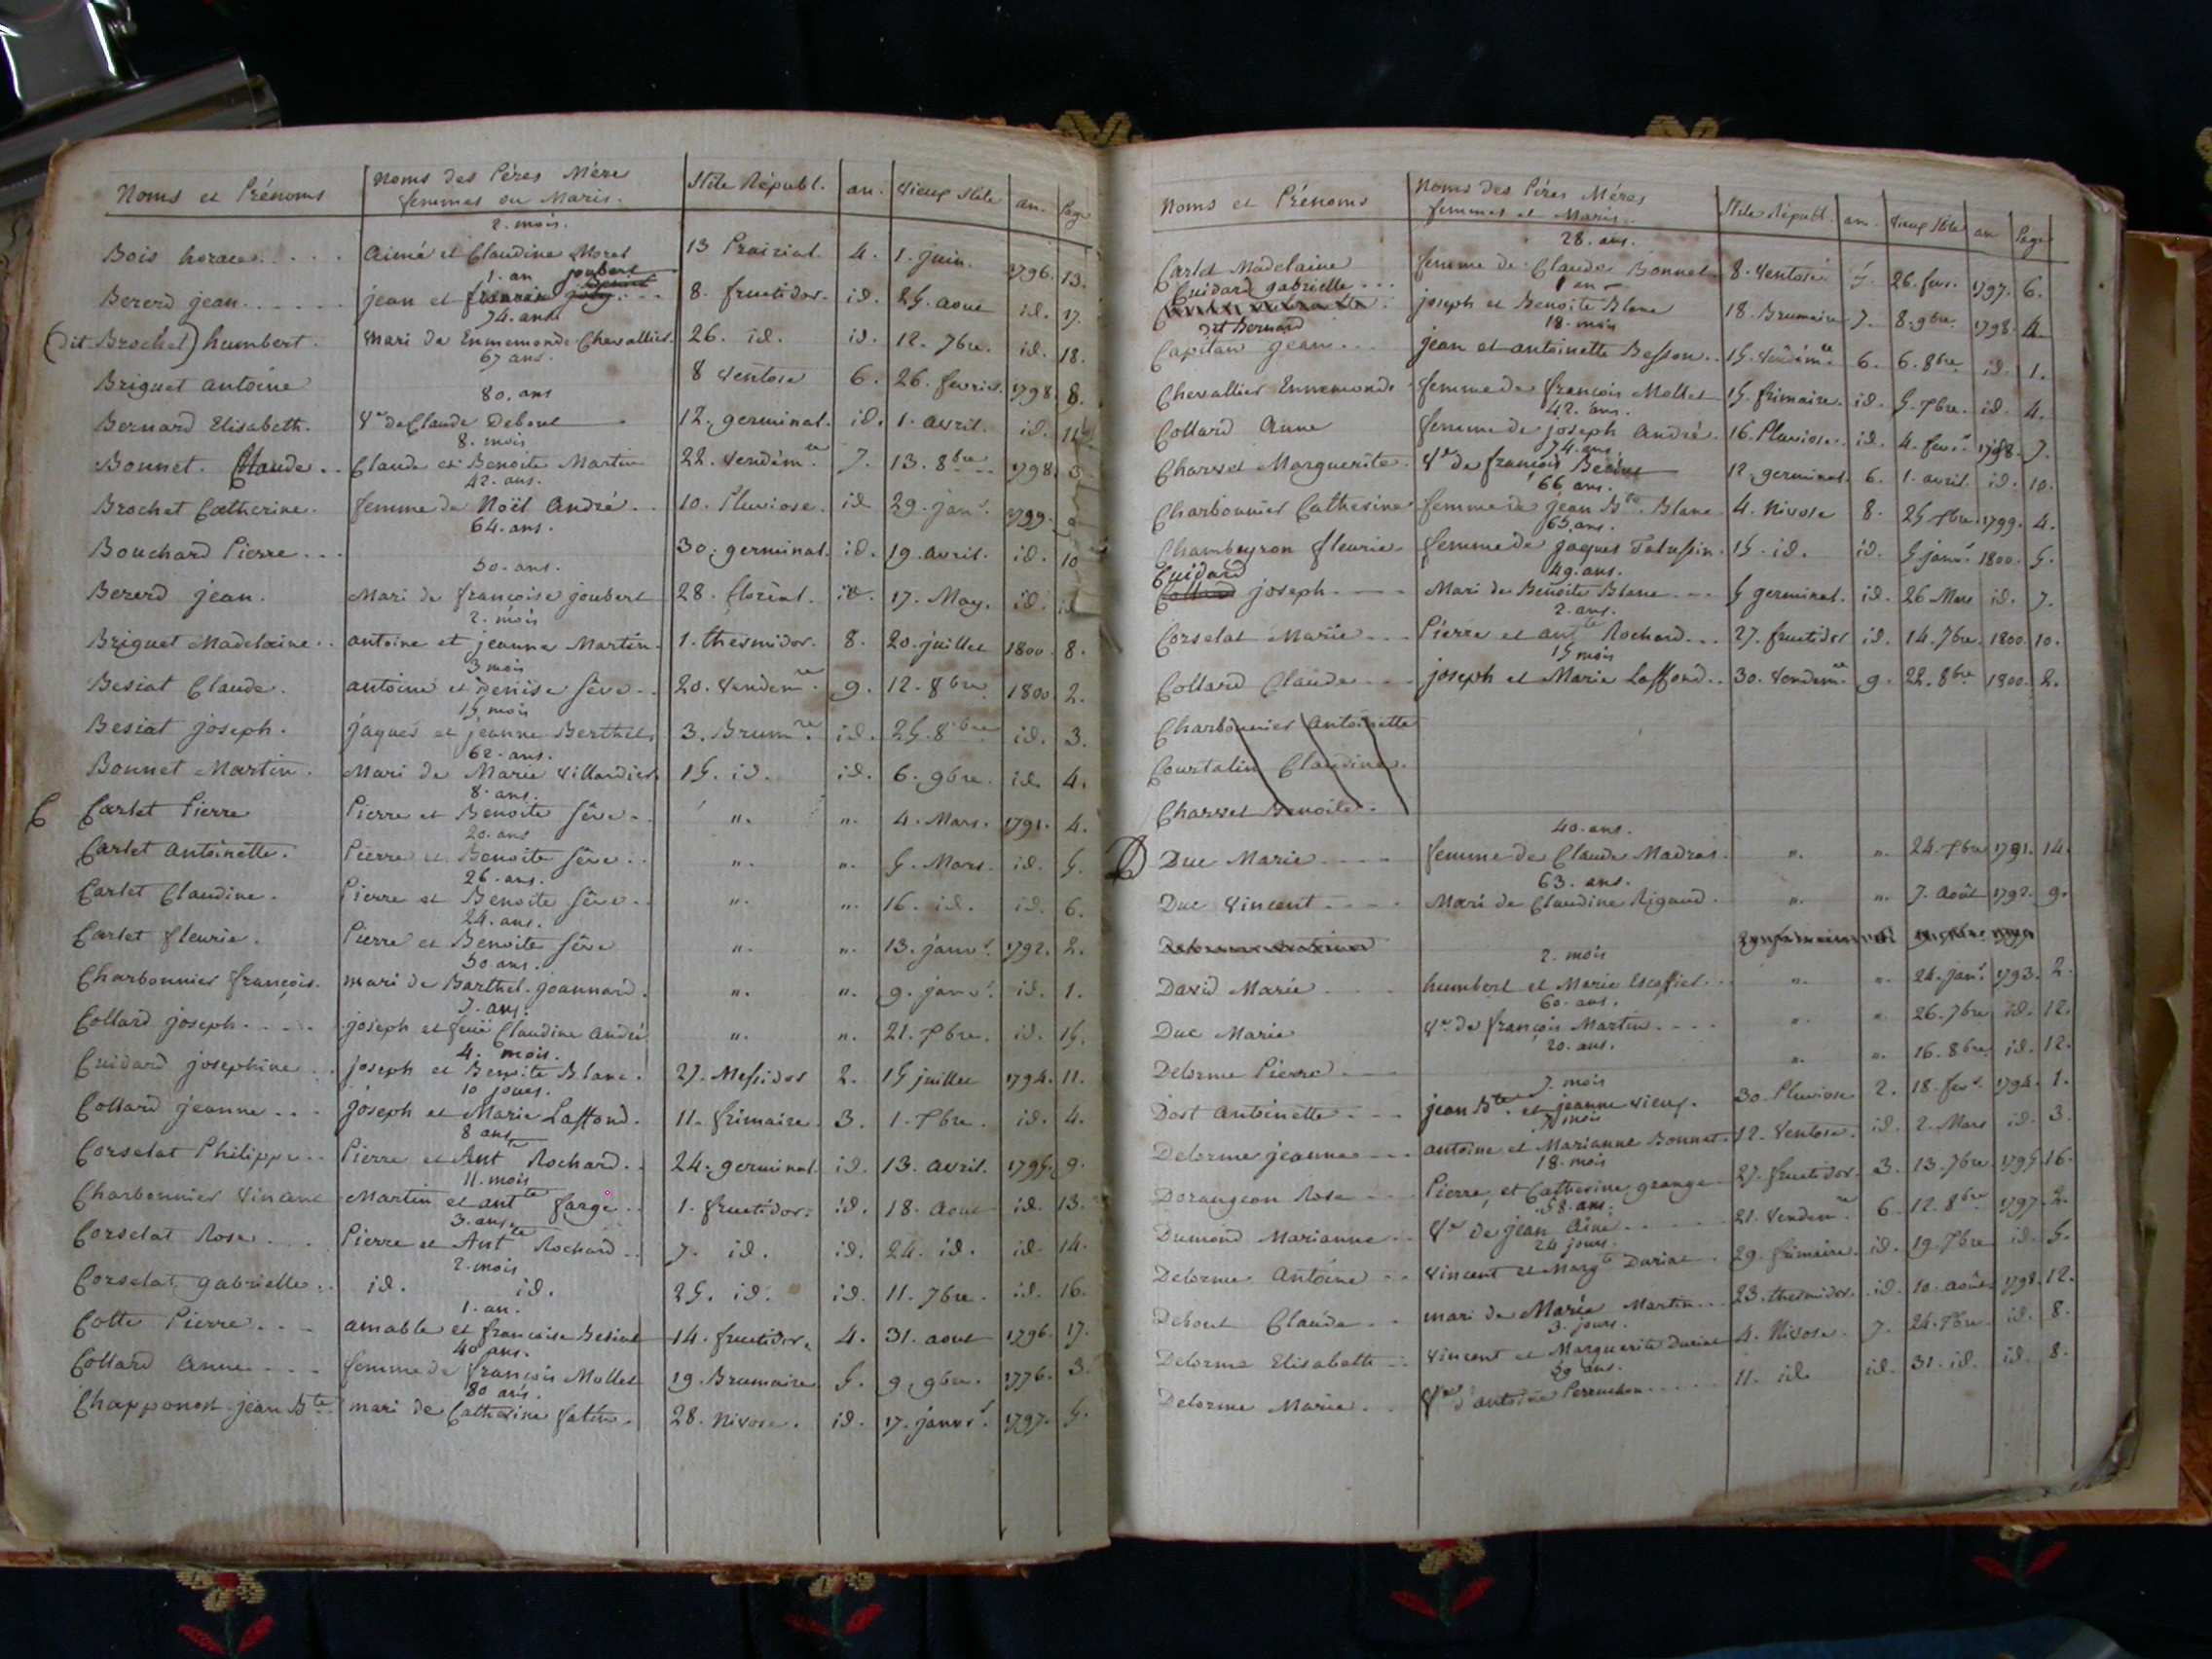 Noms et Prénoms | Noms des Péres Mére femmes ou Maris. | Stile Républ. | an. | Vieux stile | an. | Page
2. mois.
Bois horace | Aimé et Claudine Morel | 13 Prairial. | 4. | 1. juin. | 1796. | 13.
1. an joubert
Bererd jean | jean et | 8. fructidor. | id. | 25. aout | id. | 17.
74. ans
(dit Brochet) humbert. | mari de Ennemonde Chevallier. | 26. id. | id. | 12. 7bre. | id. | 18.
67 ans.
Briguet antoine | 8 Ventose | 6. | 26. fevrier. | 1798. | 8.
80. ans
Bernard Elisabeth. | Ve de Claude Debout | 12. germinal. | id. | 1. avril. | id. | 11
8. mois
Bonnet. Claude | Claude et Benoite Martin | 22. Vendém.re | 7. | 13. 8bre | 1798. | 3
42. ans.
Brochet Catherine. | femme de Noël André | 10. Pluviose. | id | 29. janr. | 1799.
64. ans.
Bouchard Pierre | 30. germinal. | id. | 19. avril. | id. | 10
50. ans.
Bererd jean. | Mari de francoise joubert | 28. floréal. | id. | 17. May. | id. | id
2. mois
Briguet Madelaine | antoine et jeanne Martin. | 1. thermidor. | 8. | 20. juillet | 1800. | 8.
3 mois
Besiat Claude. | antoine et Denise Séve | 20. Vendem.re | 9. | 12. 8bre | 1800 | 2.
15 mois
Besiat joseph. | jaques et jeanne Berthet. | 3. Brum.re | id. | 25. 8bre | id. | 3.
62. ans.
Bonnet Martin. | Mari de Marie Villardier. | 15. id. | id. | 6. 9bre. | id. | 4.
8. ans.
C Carlet Pierre | Pierre et Benoite Séve | ". | ". | 4. Mars. | 1791. | 4.
20. ans
Carlet antoinette. | Pierre et Benoite Séve | ". | ". | 5. Mars. | id. | 5.
26. ans.
Carlet Claudine. | Pierre et Benoite Séve | ". | ". | 16. id. | id. | 6.
24. ans.
Carlet fleurie. | Pierre et Benoite Séve | ". | ". | 13. janvr. | 1792. | 2.
50 ans.
Charbonnier françois. | mari de Barthel. joannard. | ". | ". | 9. janvr. | id. | 1.
7. ans.
Collard joseph | joseph et feüe Claudine André | ". | ". | 21. 7bre. | id. | 15.
4. mois.
Cuidard josephine | joseph et Benoite Blanc. | 27. Messidor | 2. | 15 juillet | 1794. | 11.
10 jours.
Collard jeanne | joseph et Marie Laffond. | 11. frimaire. | 3. | 1. Xbre. | id. | 4.
8 ans
Corselat Philippe | Pierre et Antte Rochard | 24. germinal. | id. | 13. avril. | 1795. | 9.
11. mois
Charbonnier Vincent | Martin et antte farge | 1. fructidor. | id. | 18. Aout | id. | 13.
3. ans.
Corselat Rose | Pierre et Antte Rochard | 7. id. | id. | 24. id. | id. | 14.
2. mois
Corselat gabrielle | id. id. | 25. id. | id. | 11. 7bre. | id. | 16.
1. an.
Cotte Pierre | amable et francoise Besiat | 14. fructidor. | 4. | 31. aout | 1796. | 17.
40 ans.
Collard Anne | femme de françois Mollet | 19. Brumaire. | 5. | 9. 9bre. | 1776. | 3.
80 ans.
Chapponost jean Bte | mari de Catherine | 28. Nivose. | id. | 17. janvr. | 1797. | 5.
Noms et Prénoms | Noms des Péres Méres femmes et Maris. | Stile Républ. | an. | Vieux stile | an | Page
28. ans.
Carlet Madelaine | femme de Claude Bonnet | 8. Ventose. | 5. | 26. fevr. | 1797. | 6.
1 an
Cuidard gabrielle | joseph et Benoite Blanc | 18. Brumaire | 7. | 8. 9bre. | 1798. | 4.
dit Bernard
18. mois
Capitan jean | jean et antoinette Besson | 15. Vendém.re | 6. | 6. 8bre | id. | 1.
Chevallier Ennemonde | femme de françois Mollet | 15. frimaire. | id. | 5. Xbre. | id. | 4.
42. ans.
Collard Anne | femme de joseph André. | 16. Pluviose. | id. | 4. fevr. | 1798. | 7.
74. ans.
Charvet Marguerite. | Ve de françois | 12. germinal. | 6. | 1. avril. | id. | 10.
66 ans.
Charbonnier Catherine | femme de jean Bte Blanc | 4. Nivose | 8. | 25 Xbre. | 1799. | 4.
65 ans.
Chambeyron fleurie | femme de jaques Talussin. | 15. id. | id. | 5 janvr. | 1800. | 5.
49. ans.
Cuidard joseph | Mari de Benoite Blanc | 5 germinal. | id. | 26 Mars | id. | 7.
2. ans.
Corselat Marie | Pierre et antte Rochard | 27. fructidor | id. | 14. 7bre. | 1800. | 10.
15 mois
Collard Claude | joseph et Marie Laffond | 30. Vendem.re | 9. | 22. 8bre | 1800. | 2.
Charbonnier Antoinette
Courtalin Claudine.
Charvet Benoite.
40. ans.
D Duc Marie | femme de Claude Madras. | ". | ". | 24. Xbre | 1791. | 14.
63. ans.
Duc Vincent | Mari de Claudine Rigaud. | ". | ". | 7. Août | 1792. | 9.
2. mois
David Marie | humbert et Marie Escoffier | ". | ". | 24. janr. | 1793. | 2.
60. ans.
Duc Marie | Ve de françois Martin | ". | ". | 26. 7bre | id. | 12.
20. ans.
Delorme Pierre | ". | ". | 16. 8bre | id. | 12.
7. mois
Dost Antoinette | jean Bte et jeanne Vieux. | 30. Pluviose | 2. | 18. fevr. | 1794. | 1.
mois
Delorme jeanne | antoine et Marianne Bonnet. | 12. Ventose. | id. | 2. Mars | id. | 3.
18. mois
Dorangeon Rose | Pierre et Catherine grange | 27. fructidor. | 3. | 13. 7bre | 1795 | 16.
58. ans.
Dumond Marianne | Ve de jean Aine | 21. Vendem.re | 6. | 12. 8bre | 1797. | 2.
24 jours.
Delorme Antoine | Vincent et Margte Duriat | 29. frimaire. | id. | 19. Xbre | id. | 5.
Debout Claude | mari de Marie Martin | 23. thermidor. | id. | 10. août | 1798. | 12.
3. jours.
Delorme Elisabeth | Vincent et Marguerite Duriat | 4. Nivose. | 7. | 24. Xbre. | id. | 8.
59 ans.
Delorme Marie | Ve d'antoine | 11. id. | id. | 31. id. | id. | 8.